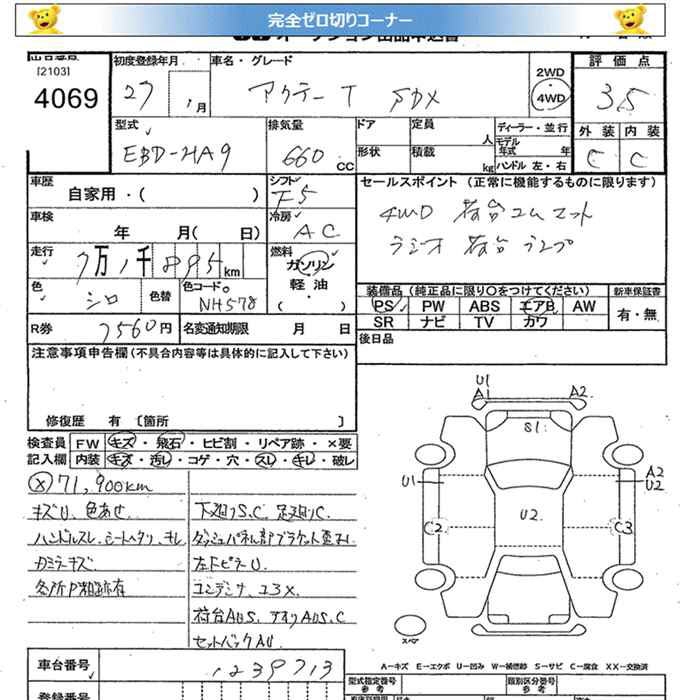 完全ゼロ切りコーナー
オークション出品申込書
出品番号
[2103]
4069
初度登録年月
27 年 1月
車名・グレード
アクティー T SDX
2WD
4WD
評価点
3.5
外装 内装
C C
型式
EBD-HA9
排気量
660 CC
ドア
定員
人
形状
積載
kg
ディーラー・並行
モデル年式 年
ハンドル 左・右
車歴
自家用・( )
シフト
F5
車検
年 月( 日)
冷房
AC
走行
7万1千895km
燃料
ガソリン
軽油
( ・ )
色
シロ
色替
色コードNo.
NH578
R券
7560円
名変通知期限 月 日
セールスポイント (正常に機能するものに限ります)
4WD 荷台ゴムマット
ラジオ 荷台ランプ
装備品(純正品に限り〇をつけてください)
新車保証書
PS PW ABS エアB AW
SR ナビ TV カワ
有・無
後日品
注意事項申告欄(不具合内容等は具体的に記入して下さい)
修復歴 有 〔箇所 〕
検査員記入欄
FW キズ・飛石・ヒビ割・リペア跡・×要
内装 キズ・汚レ・コゲ・穴・スレ・キレ・破レ
ⓧ71,900km
キズU、色あせ
ハンドルスレ、シートヘタリ、キレ
Rミラーキズ
各所P粗跡有
下廻りS、C 足廻りC
ダッシュパネル部ブラケット歪み
左FピラーU
コンデンサ、コラX
荷台AUS、アオリAUS、C
セットバックAU
U1
A1
A2
S1
U1
A2
U2
U2
C2
C3
スペア
A-キズ E-エクボ U-凹み W-補修跡 S-サビ C-腐食 XX-交換済
車台番号
1239713
型式指定番号
参考
類別区分番号
参考
登録番号